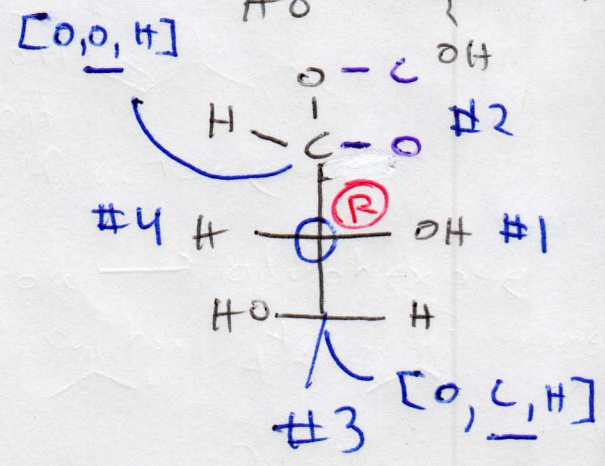 HO
[O,O,H]
OH
O - C
#2
H - C - O
R
#4 H OH #1
HO H
[O, C, H]
#3